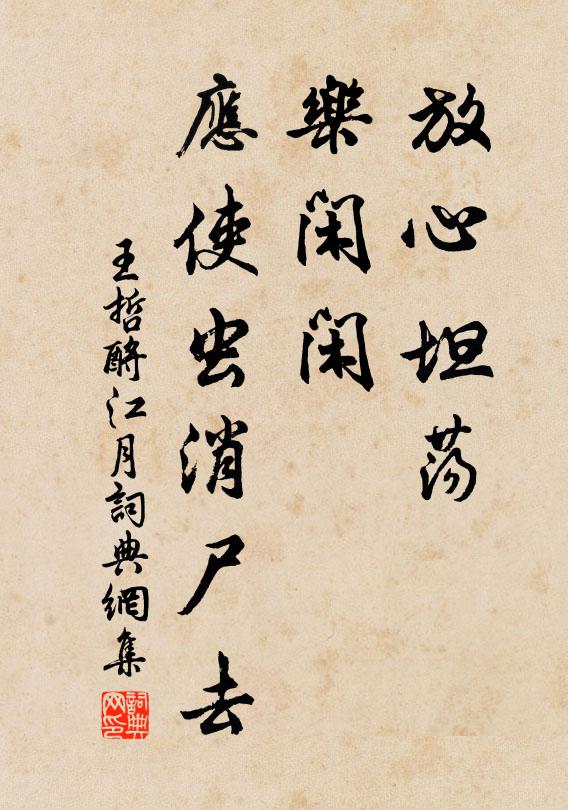 放心坦荡
樂閑閑
應使虫消尸去
王哲酹江月詞典網集
詞典
网印